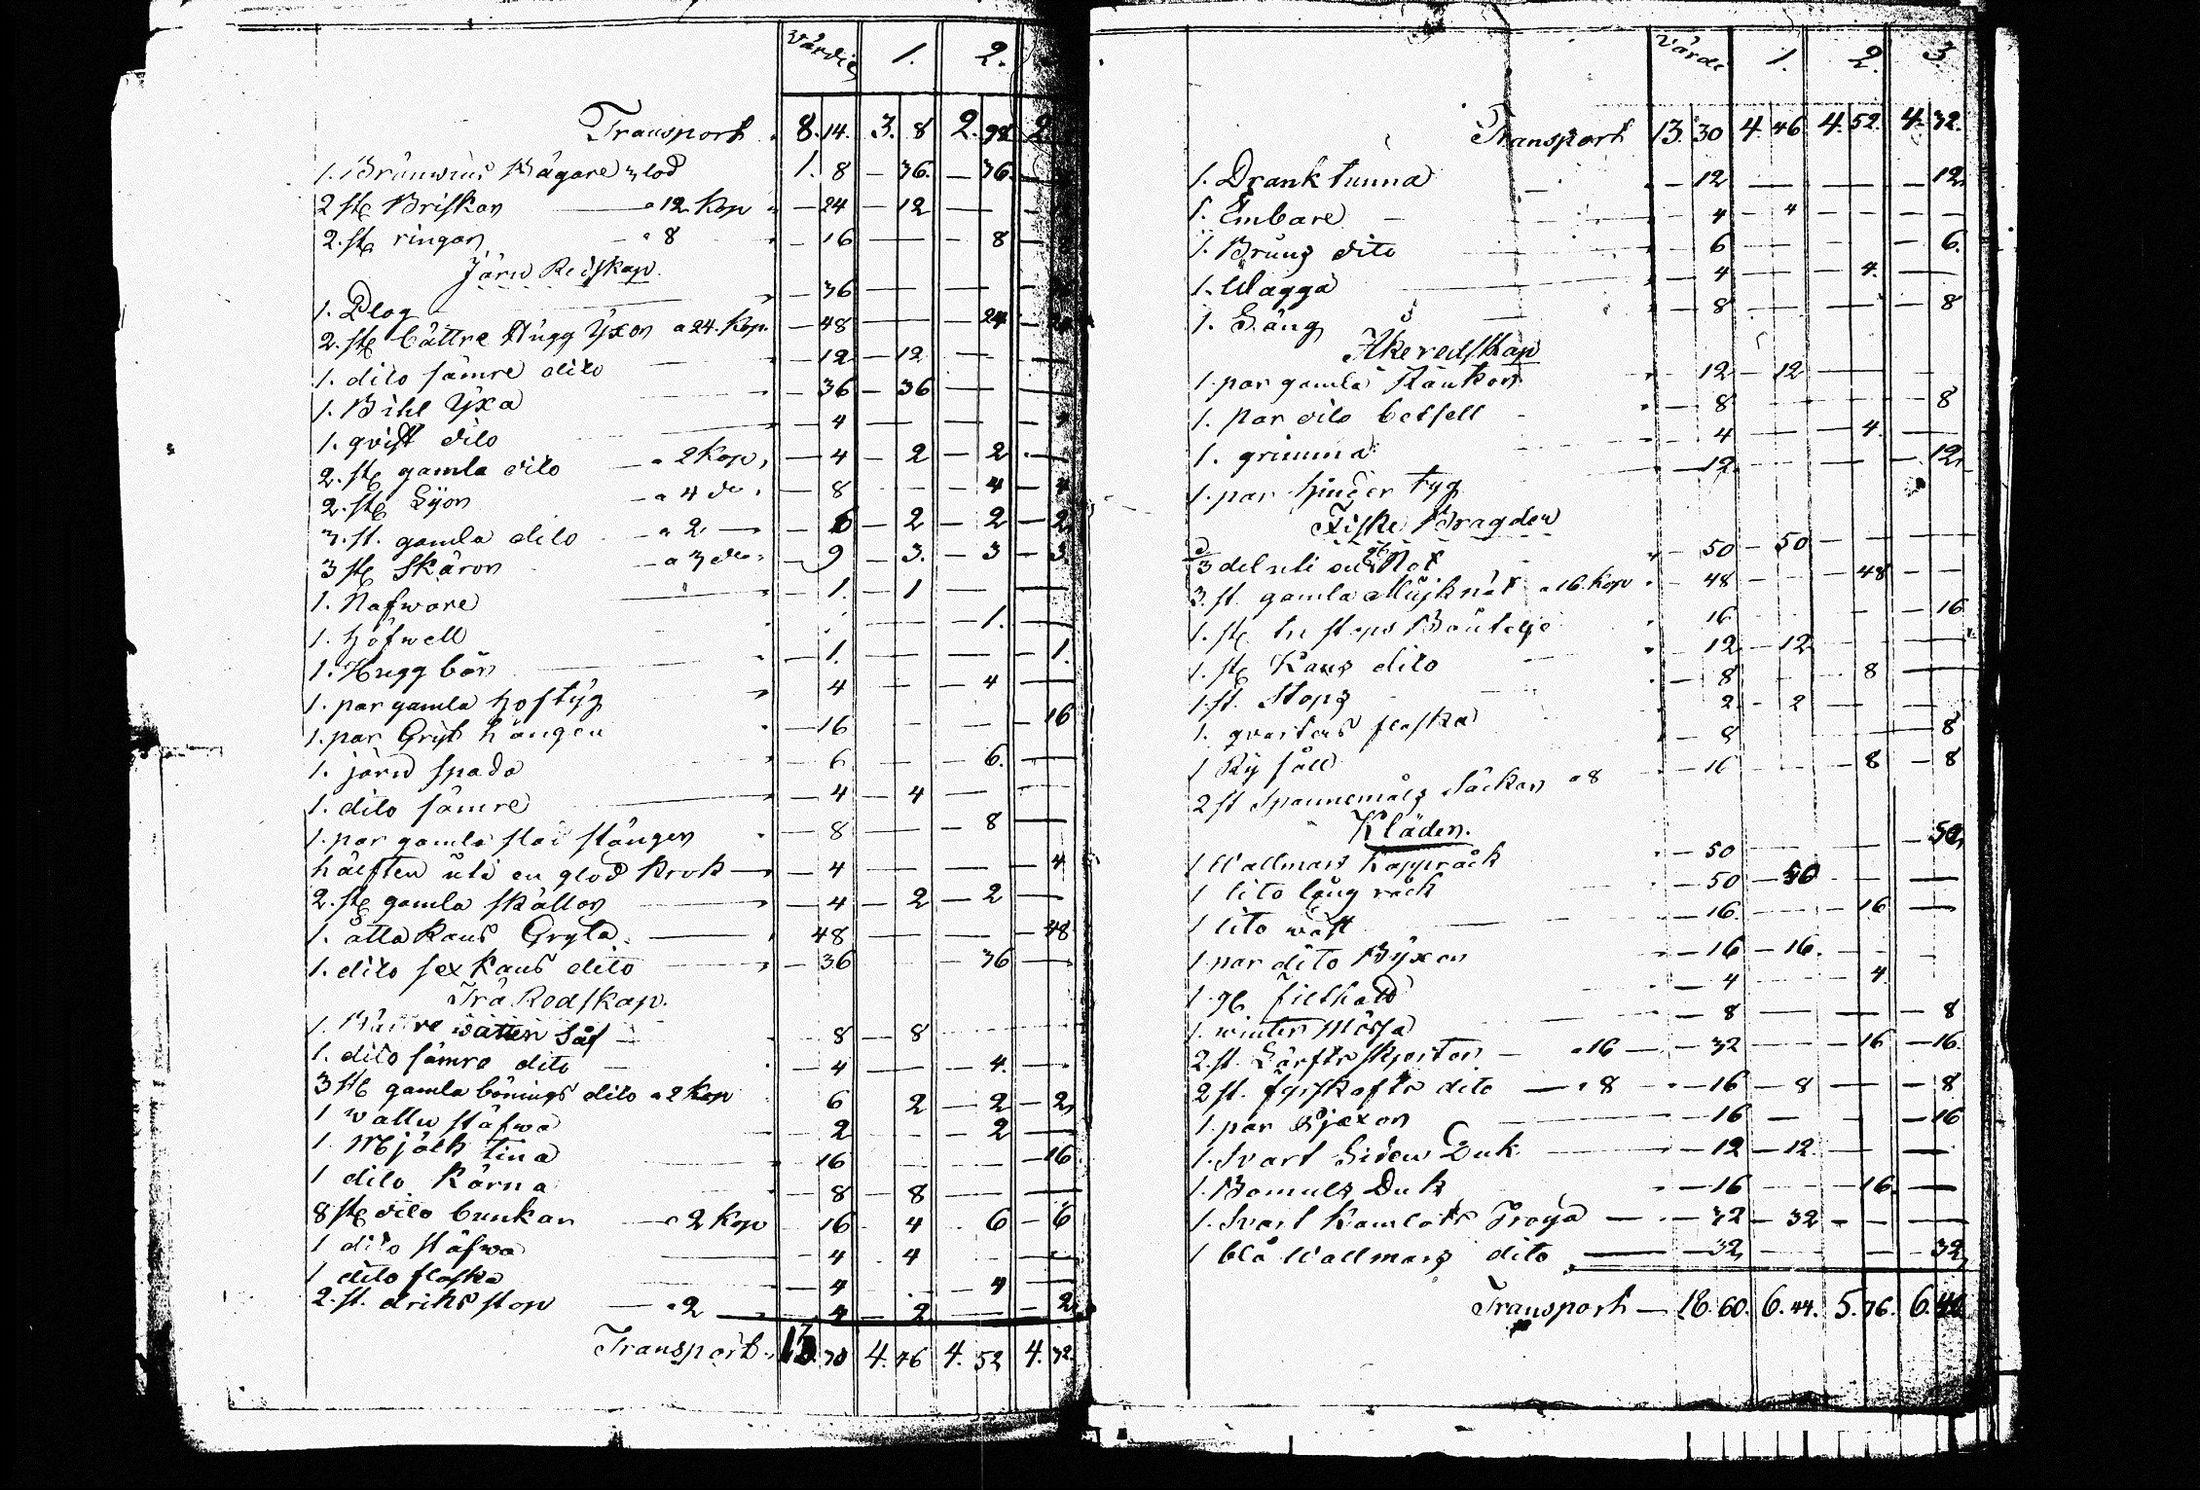 Värdie 1. 2.
Transport 8. 14. 3. 8 2. 98 2
1. Bränwins Bägare 3 lod 1. 8 — 36. — 36.
2 st Briskor — a 12 Kop — 24 — 12 —
2. st ringar — a 8 — 16 — — 8 —
Järn Redskap.
1. Plog — 36 — —
2. st bättre Hugg Yxor a 24. Kop. — 48 — — 24 —
1. dito sämre dito — 12 — 12 —
1. Bihl Yxa — 36 — 36 —
1. qvist dito — 4 — —
2. st gamla dito — a 2 Kop, — 4 — 2 — 2 —
2. st Lÿor — a 4 do, — 8 — 4 — 4
3. st. gamla dito — a 2 — — 6 — 2 — 2 — 2
3 st Skäror — a 3 do — 9 — 3. — 3 — 3
1. Nafware — 1. — 1 —
1. Höfwell — 1. —
1. Hugg bör — 1. — — 1.
1. par gamla hoftÿg 4 — 4 —
1. par Gryt hängen — 16 — — 16
1. järn spada — 6 — 6. —
1. dito sämre — 4 — 4 —
1. par gamla slai stänger — 8 — — 8 —
hälften uti en glod krok — 4 — — 4
2. st gamla skällor — 4 — 2 — 2 —
1. åtta Kans Gryta. — 48 — — 48
1. dito sex Kans dito — 36 36 —
Trä Redskap.
1. Bättre watten Så 8 — 8
1. dito sämre dito — 4 — — 4. —
3 st gamla bönings dito a 2 Kop 6 2 — 2 — 2
1 wattu stäfwa — 2 — 2 —
1 Mjölk tina 16 — 16
1 dito Kärna 8 — 8 — —
8 st dito bunkar — a 2 Kop 16 4 6 — 6
1 dito stäfwa — 4 4 — —
1 dito flaska — 4 — 4 —
2. st. driks stop — a 2 — 4 — 2 — — 2
Transport. 13. 30 4. 46 4. 52 4. 32.
Värde 1. 2. 3
Transport 13. 30 4. 46 4. 52. 4. 32.
1. Drank tunna — 12 — — — 12
1. Embare — 4 — 4 — — —
1. Bruns dito — 6 — — 6.
1. Wagga — 4 — — 4. —
1. Säng — 8 — — — 8
Åkeredskap
1. par gamla Rankor — 12 — 12 —
1. par dito betsell — 8 — — 8
1. grimma — 4 — 4. —
1. par hinder tyg — 12 — — 12
Fiske Bragder
2/3 del uti en Not — 50 — 50 —
3. st. gamla Mujknät a 16. Kop — 48 — — 48 —
1. st tu stops Boutelje 16 — — 16
1. st Kans dito 12 — 12
1. st. Stops — 8 — 8 —
1. qvarters flaska 2 — 2 —
1 Ry såll — 8 — 8
2 st Spannemåls Säckar a 8 — 16 — 8 — 8
Kläder.
1 Wallmars Kappråck — 50 — — 50
1 dito lång råck — 50 — 50 —
1 dito wäst — 16. — — 16 —
1 par dito Byxor — 16 — 16. —
1. gl. filthatt — 4 — 4.
1. winter Mössa — 8 — — — 8
2. st. Lärfts skjortor — a 16 — — 32 — 16 — 16.
2 st. fyrskafts dito — a 8 — — 16 — 8 — — 8
1. par — 16 — — — 16
1. Svart Siden Duk — 12 — 12 — —
1. Bomuls Duk — 16 — — 16. —
1. Svart Kamlots Tröja — — 32 — 32 — — —
1 blå Wallmars dito — 32 — — — 32
Transport — 18. 60. 6. 44. 5. 76. 6.